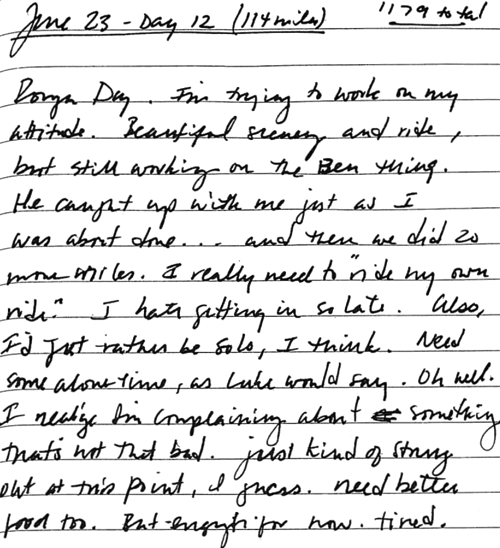 June 23 - Day 12 (114 miles) 1179 total
Rough Day. I'm trying to work on my
attitude. Beautiful scenery and ride,
but still working on the Ben thing.
He caught up with me just as I
was about done... and then we did 20
more miles. I really need to "ride my own
ride." I hate getting in so late. Also,
I'd just rather be solo, I think. Need
some alone time, as Luke would say. Oh well.
I realize I'm complaining about something
that's not that bad. just kind of strung
out at this point, I guess. need better
food too. But enough for now. tired.